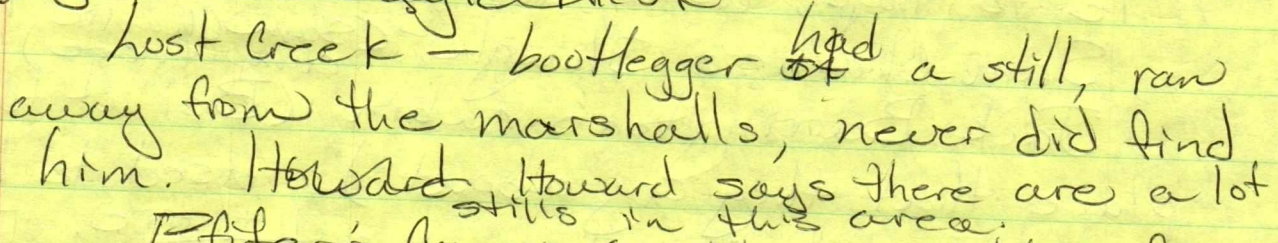 Lost Creek — bootlegger had a still, ran
away from the marshalls, never did find
him. Howard, Howard says there are a lot
stills in this area.